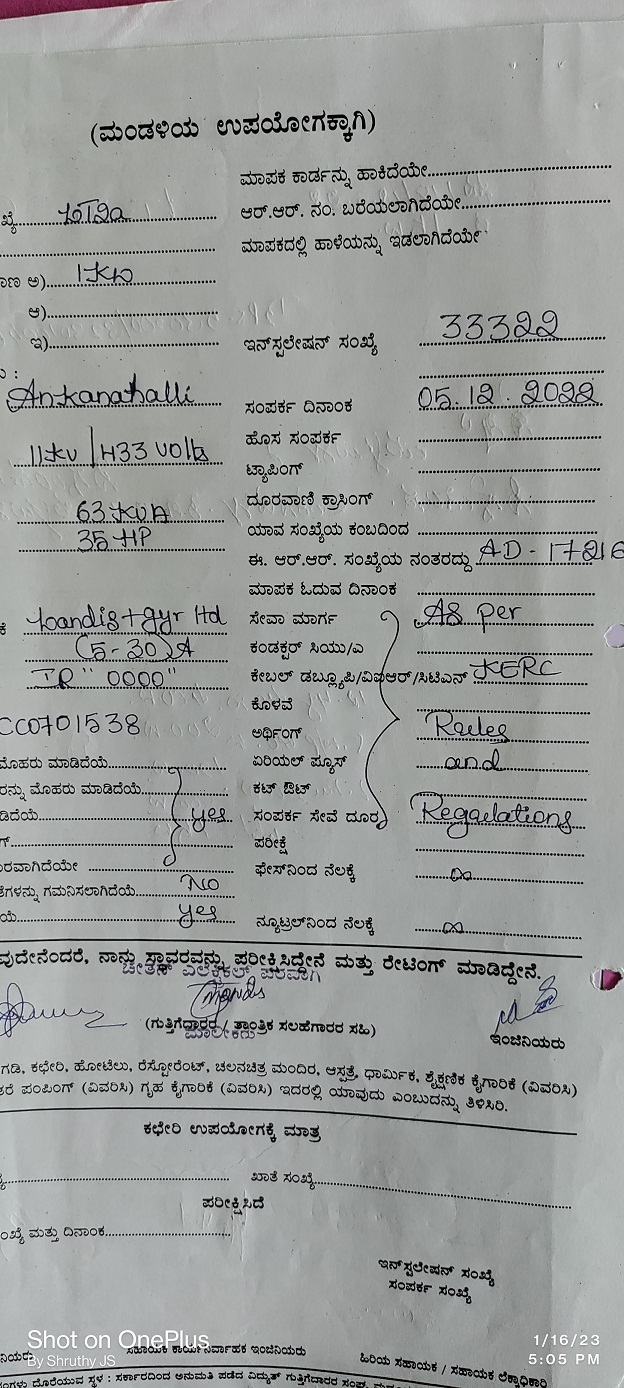 (ಮಂಡಳಿಯ ಉಪಯೋಗಕ್ಕಾಗಿ)
ಮಾಪಕ ಕಾರ್ಡನ್ನು ಹಾಕಿದೆಯೇ
ಆರ್.ಆರ್. ನಂ. ಬರೆಯಲಾಗಿದೆಯೇ
ಮಾಪಕದಲ್ಲಿ ಹಾಳೆಯನ್ನು ಇಡಲಾಗಿದೆಯೇ
ಅ) 1KW
ಆ)
ಇ)
ಇನ್‌ಸ್ಟಲೇಷನ್ ಸಂಖ್ಯೆ 33322
Ankanahalli ಸಂಪರ್ಕ ದಿನಾಂಕ 05.12.2022
ಹೊಸ ಸಂಪರ್ಕ
11KV/433 volts ಟ್ಯಾಪಿಂಗ್
ದೂರವಾಣಿ ಕ್ರಾಸಿಂಗ್
63 KVA ಯಾವ ಸಂಖ್ಯೆಯ ಕಂಬದಿಂದ
35 HP ಈ. ಆರ್.ಆರ್. ಸಂಖ್ಯೆಯ ನಂತರದ್ದು AD-17216
ಮಾಪಕ ಓದುವ ದಿನಾಂಕ
Landis+gyr ltd ಸೇವಾ ಮಾರ್ಗ As per
(5-30)A ಕಂಡಕ್ಟರ್ ಸಿಯು/ಎ
IR "0000" ಕೇಬಲ್ ಡಬ್ಲ್ಯೂಪಿ/ವಿಐಆರ್/ಸಿಟಿಎಸ್ KERC
ಕೊಳವೆ
CC0701538 ಅರ್ಥಿಂಗ್ Rules
ಮೊಹರು ಮಾಡಿದೆಯೆ ಏರಿಯಲ್ ಫ್ಯೂಸ್ and
ಮೊಹರು ಮಾಡಿದೆಯೆ ಕಟ್ ಔಟ್
yes ಸಂಪರ್ಕ ಸೇವೆ ದೂರ Regulations
ಪರೀಕ್ಷೆ
ಫೇಸ್‌ನಿಂದ ನೆಲಕ್ಕೆ ∞
ಗಮನಿಸಲಾಗಿದೆಯೆ No
yes ನ್ಯೂಟ್ರಲ್‌ನಿಂದ ನೆಲಕ್ಕೆ ∞
ನಾನು ಸ್ಥಾವರವನ್ನು ಪರೀಕ್ಷಿಸಿದ್ದೇನೆ ಮತ್ತು ರೇಟಿಂಗ್ ಮಾಡಿದ್ದೇನೆ.
(ಗುತ್ತಿಗೆದಾರರ / ತಾಂತ್ರಿಕ ಸಲಹೆಗಾರರ ಸಹಿ) ಇಂಜಿನಿಯರು
ಕಛೇರಿ, ಹೋಟೆಲು, ರೆಸ್ಟೋರೆಂಟ್, ಚಲನಚಿತ್ರ ಮಂದಿರ, ಆಸ್ಪತ್ರೆ, ಧಾರ್ಮಿಕ, ಶೈಕ್ಷಣಿಕ ಕೈಗಾರಿಕೆ (ವಿವರಿಸಿ)
ಪಂಪಿಂಗ್ (ವಿವರಿಸಿ) ಗೃಹ ಕೈಗಾರಿಕೆ (ವಿವರಿಸಿ) ಇದರಲ್ಲಿ ಯಾವುದು ಎಂಬುದನ್ನು ತಿಳಿಸಿರಿ.
ಕಛೇರಿ ಉಪಯೋಗಕ್ಕೆ ಮಾತ್ರ
ಖಾತೆ ಸಂಖ್ಯೆ
ಪರೀಕ್ಷಿಸಿದೆ
ಮತ್ತು ದಿನಾಂಕ
ಇನ್‌ಸ್ಟಲೇಷನ್ ಸಂಖ್ಯೆ
ಸಂಪರ್ಕ ಸಂಖ್ಯೆ
ಸಹಾಯಕ ಕಾರ್ಯನಿರ್ವಾಹಕ ಇಂಜಿನಿಯರು ಹಿರಿಯ ಸಹಾಯಕ / ಸಹಾಯಕ ಲೆಕ್ಕಾಧಿಕಾರಿ
Shot on OnePlus
By Shruthy JS
1/16/23
5:05 PM